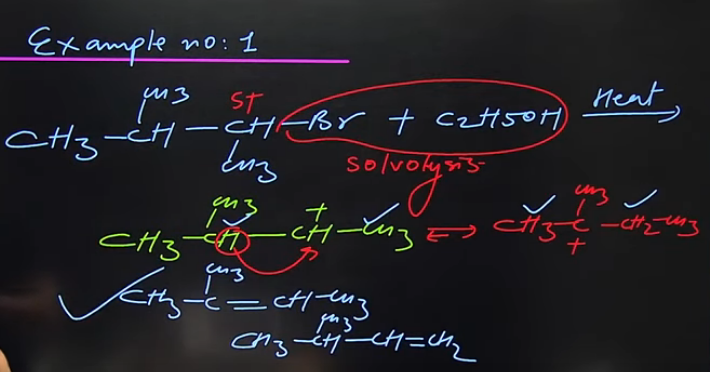 Example no: 1
CH3
δ+
CH3 – CH – CH – Br + C2H5OH Heat →
CH3
solvolysis
CH3 + CH3
CH3 – CH – CH – CH3 ↔ CH3 – C – CH2 – CH3
+
CH3
CH3 – C = CH – CH3
CH3
CH3 – CH – CH = CH2